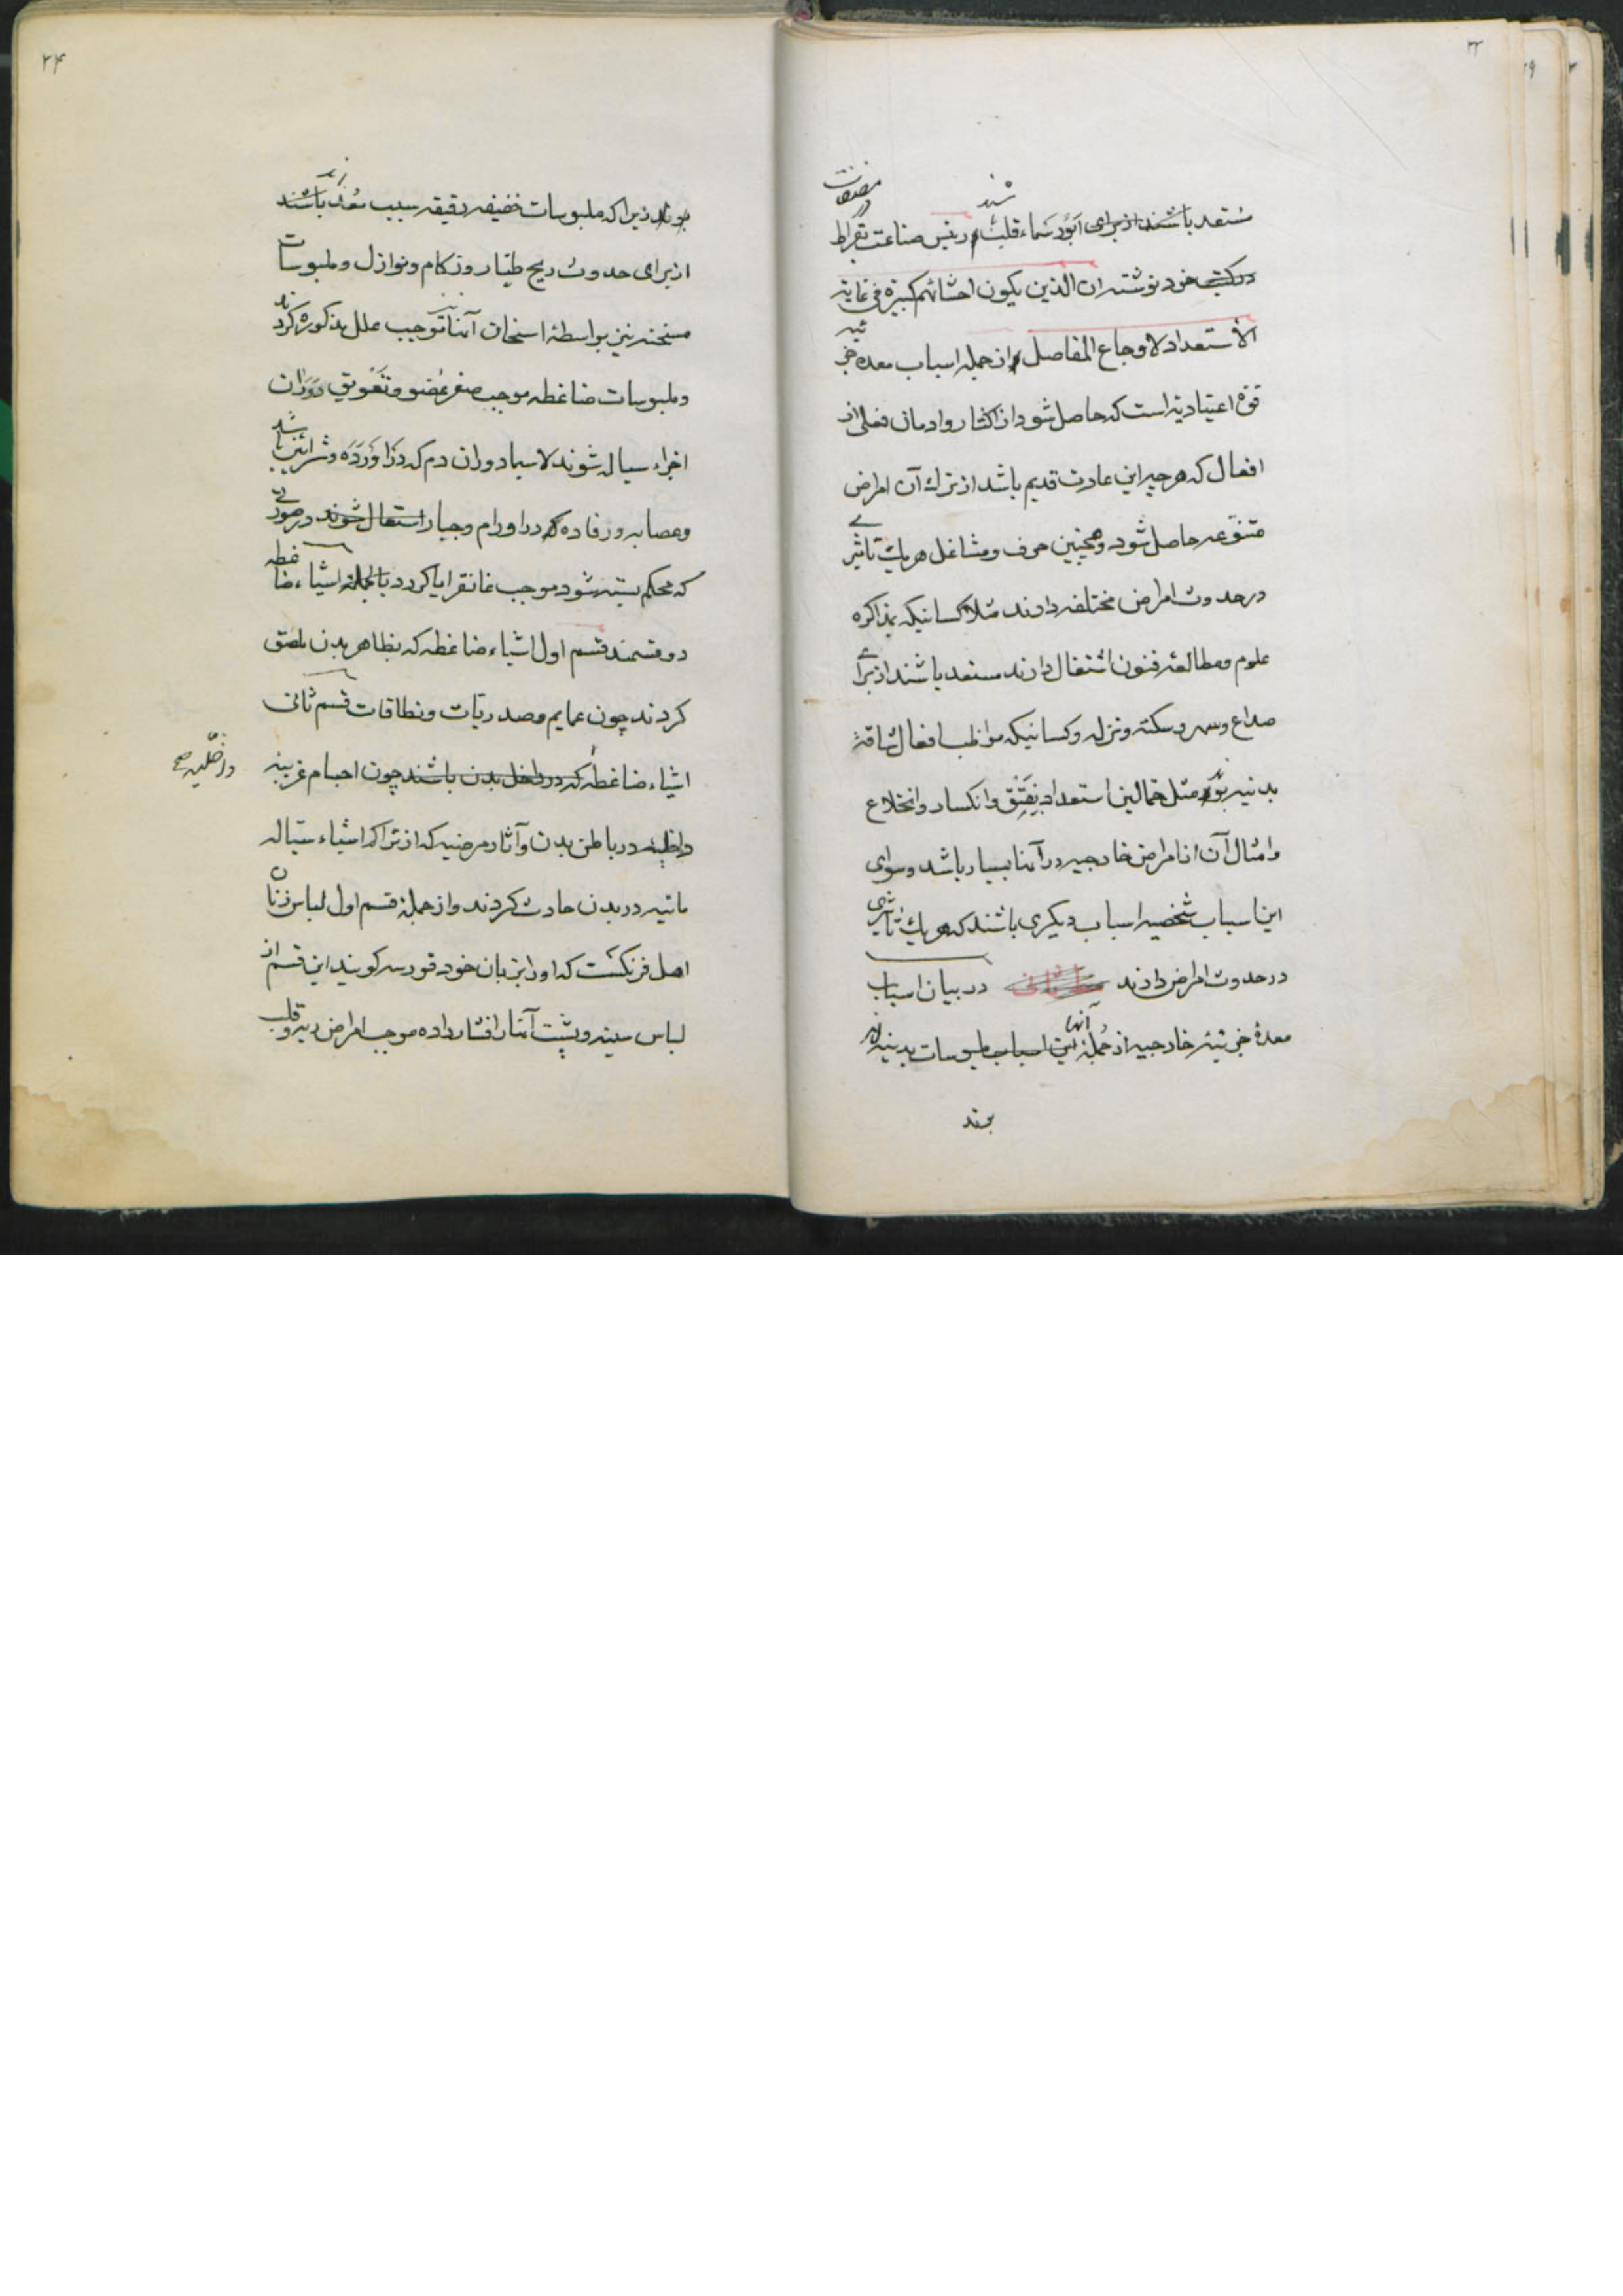 ۲۳
مصنفات
شند
مستعد باشند از برای آبورسماء قلب و رئیس صناعت بقراط
در کتب خود نوشته ان الذین یکون احشائهم کبیرة فی غایة
الاستعداد لاوجاع المفاصل و از جمله اسباب معده جزئیه
قوة اعتیادیه است که حاصل شود از اکثار و ادمان فعلی از
افعال که هر چیز این عادت قدیم باشد از ترك آن امراض
متنوعه حاصل شود و همچنین حرف و مشاغل هر یك تاثیری
در حدوث امراض مختلفه دارند مثلا کسانیکه بمذاکره
علوم و مطالعه فنون اشتغال دارند مستعد باشند از برای
صداع و سهر و سکته و نزله و کسانیکه مواظب افعال شاقه
بدنیه بوند مثل حمالین استعداد بفتق و انکسار و انخلاع
و امثال آن از امراض خارجیه در آنها بسیار باشد و سوای
این اسباب شخصیه اسباب دیگری باشند که هر یك تاثیری
در حدوث امراض دارند در بیان اسباب
معدهٔ جزئیهٔ خارجیه از جملهٔ آنها این اسباب ملبوسات بدنیه‌اند
بوند
۲۴
بوند زیرا که ملبوسات خفیفه رقیقه سبب معد باشند
از برای حدوث ریح طیار و زکام و نوازل و ملبوسات
مسخنه نیز بواسطهٔ اسخان آنها موجب علل مذکوره گردند
و ملبوسات ضاغطه موجب صغر عضو و تعویق دوران
اجزاء سیاله شوند لاسیما دوران دم که در اورده و شرائین باشد
و عصابه و رفاده که در اورام و جبار استعمال شوند در صورتی
که محکم بسته شود موجب غانقرایا گردد بالجمله اشیاء ضاغطه
دو قسمند قسم اول اشیاء ضاغطه که بظاهر بدن ملصق
گردند چون عمایم و صدریات و نطاقات قسم ثانی
اشیاء ضاغطه که در داخل بدن باشند چون اجسام غریبه
داخلیه در باطن بدن و آثار مرضیه که از تراکم اشیاء سیاله
مائیه در بدن حادث گردند و از جمله قسم اول لباس زنان
اهل فرنگست که او را بزبان خود قورسه گویند این قسم از
لباس سینه و پشت آنها را فشار داده موجب امراض ریه و قلب
داخلیه صح